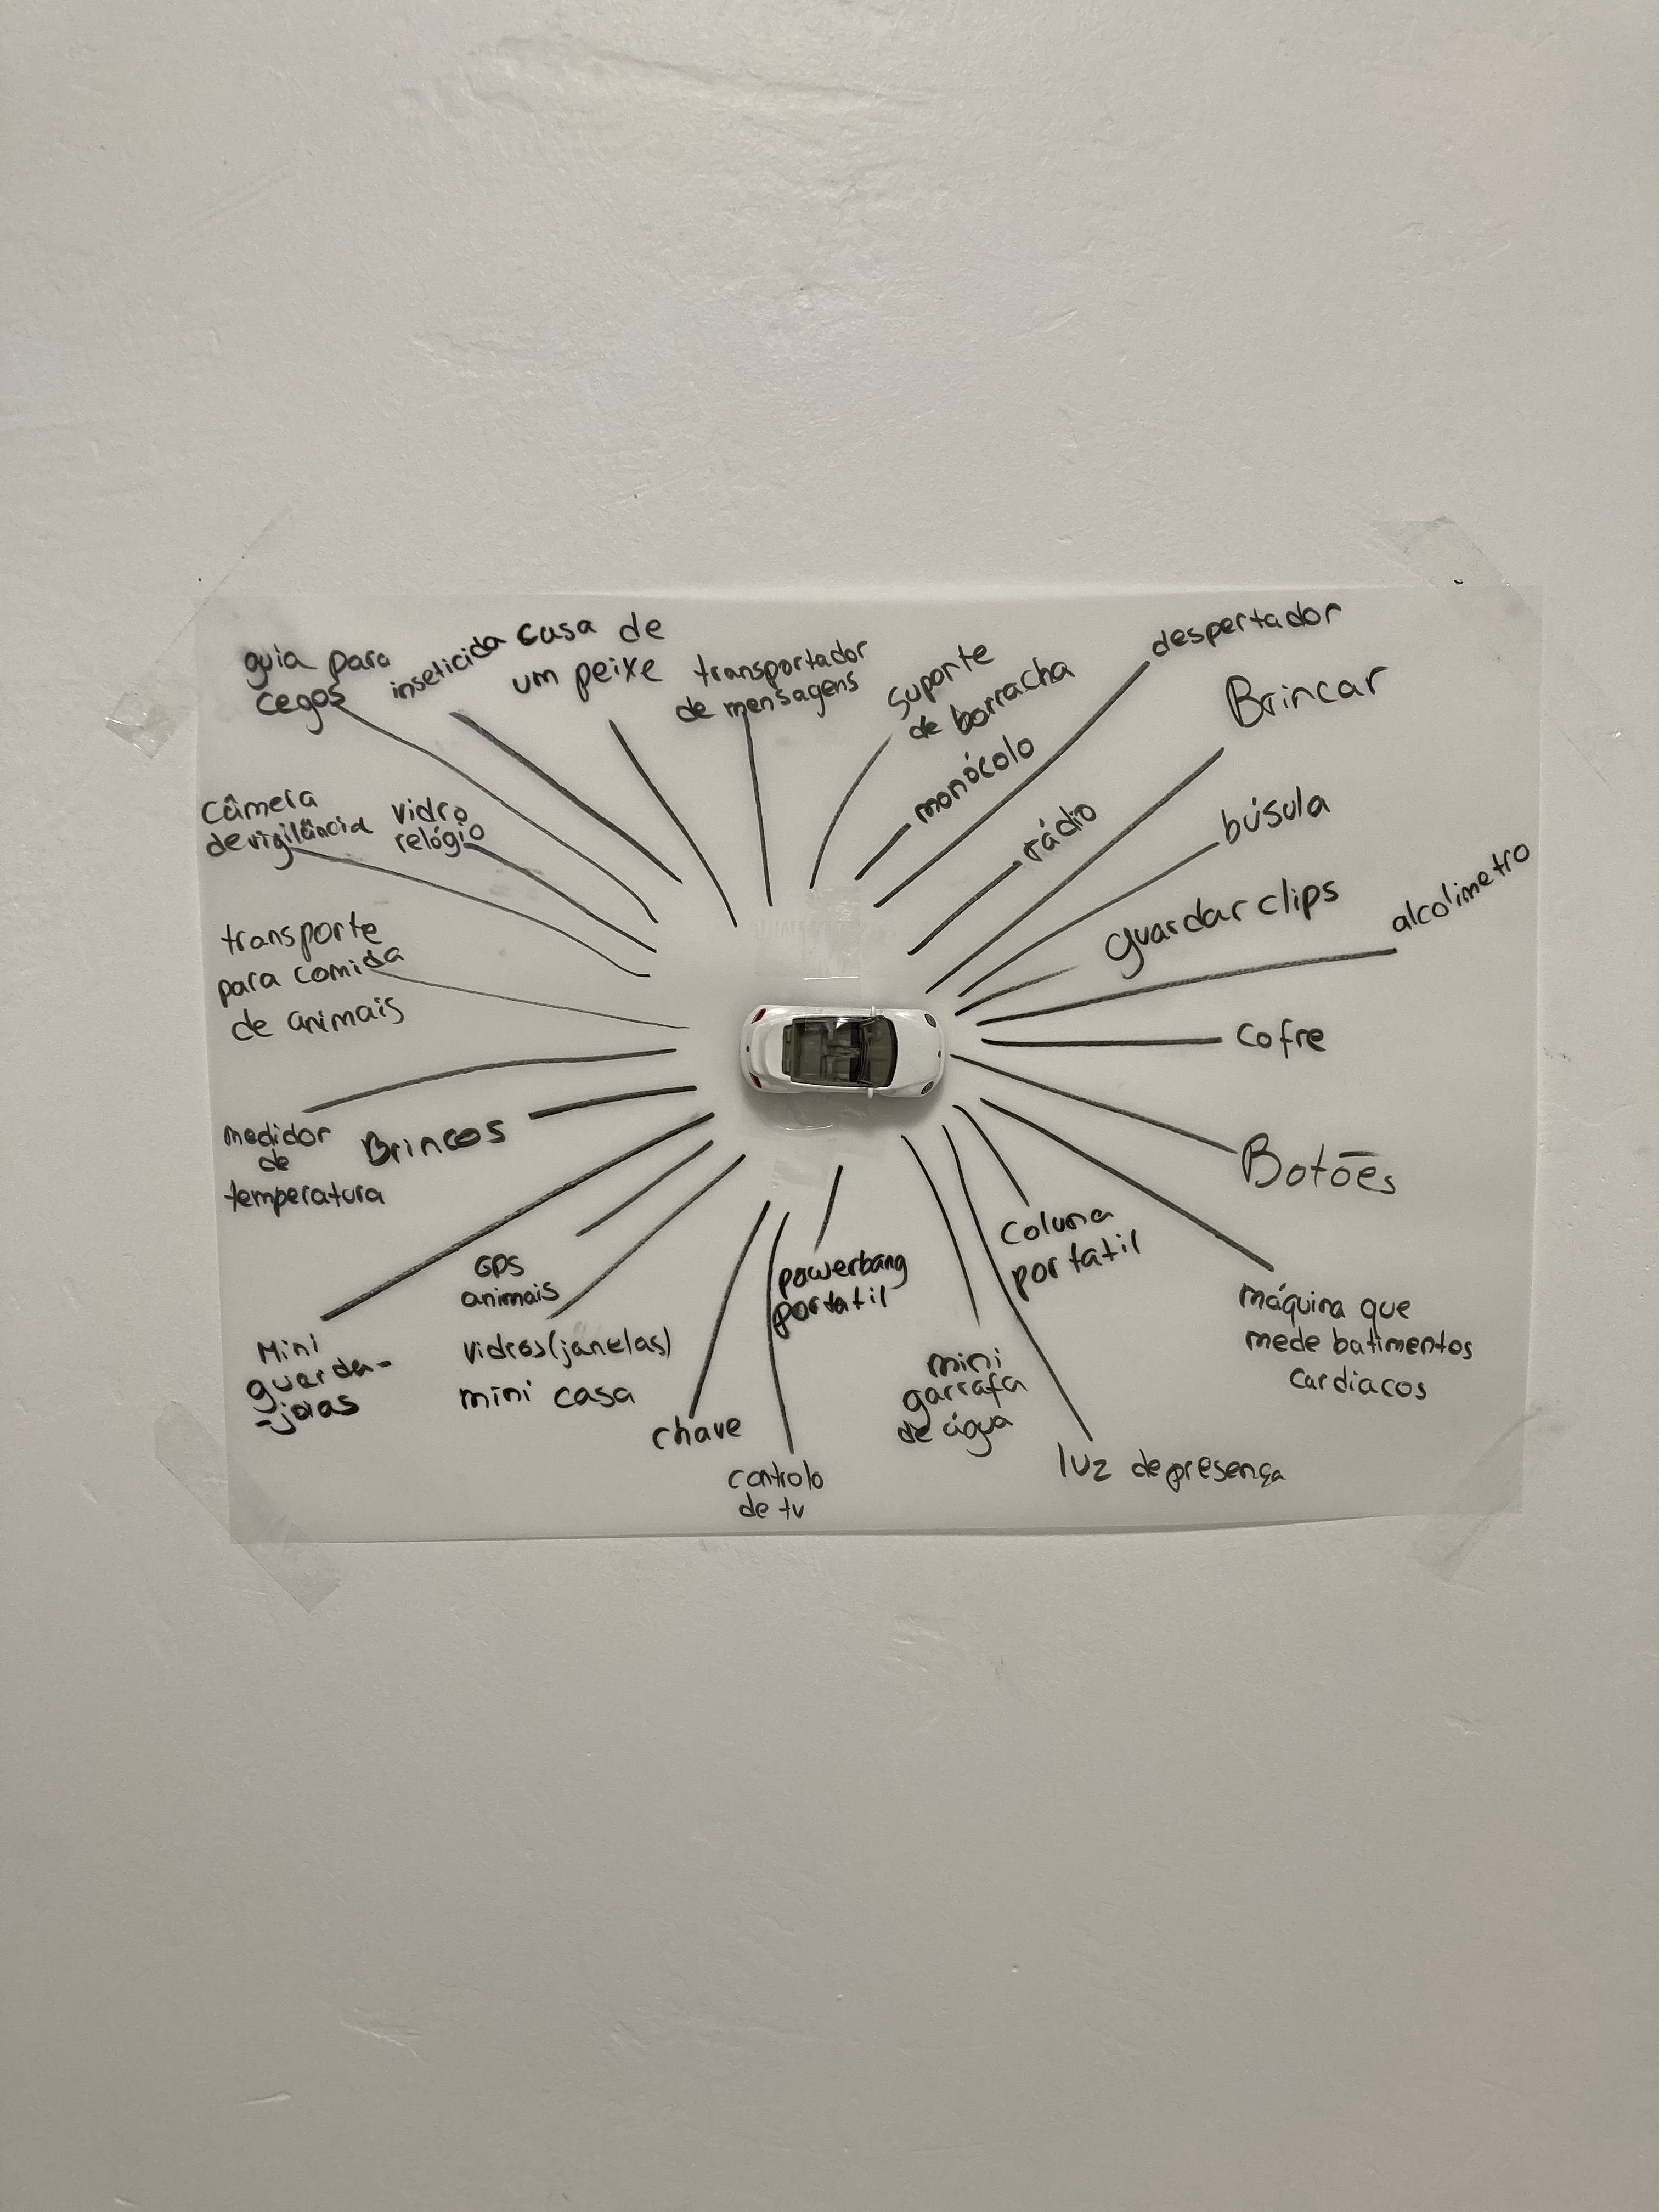 guia para
cegos
inseticida
casa de
um peixe
transportador
de mensagens
suporte
de borracha
monócolo
despertador
rádio
Brincar
búsula
guardar clips
alcolimetro
cofre
Botões
máquina que
mede batimentos
cardiacos
coluna
portatil
luz de presença
mini
garrafa
de água
powerbang
portatil
controlo
de tv
chave
vidros(janelas)
mini casa
GPS
animais
Mini
guarda-
-joias
Brincos
medidor
de
temperatura
transporte
para comida
de animais
câmera
de vigilância
vidro
relógio